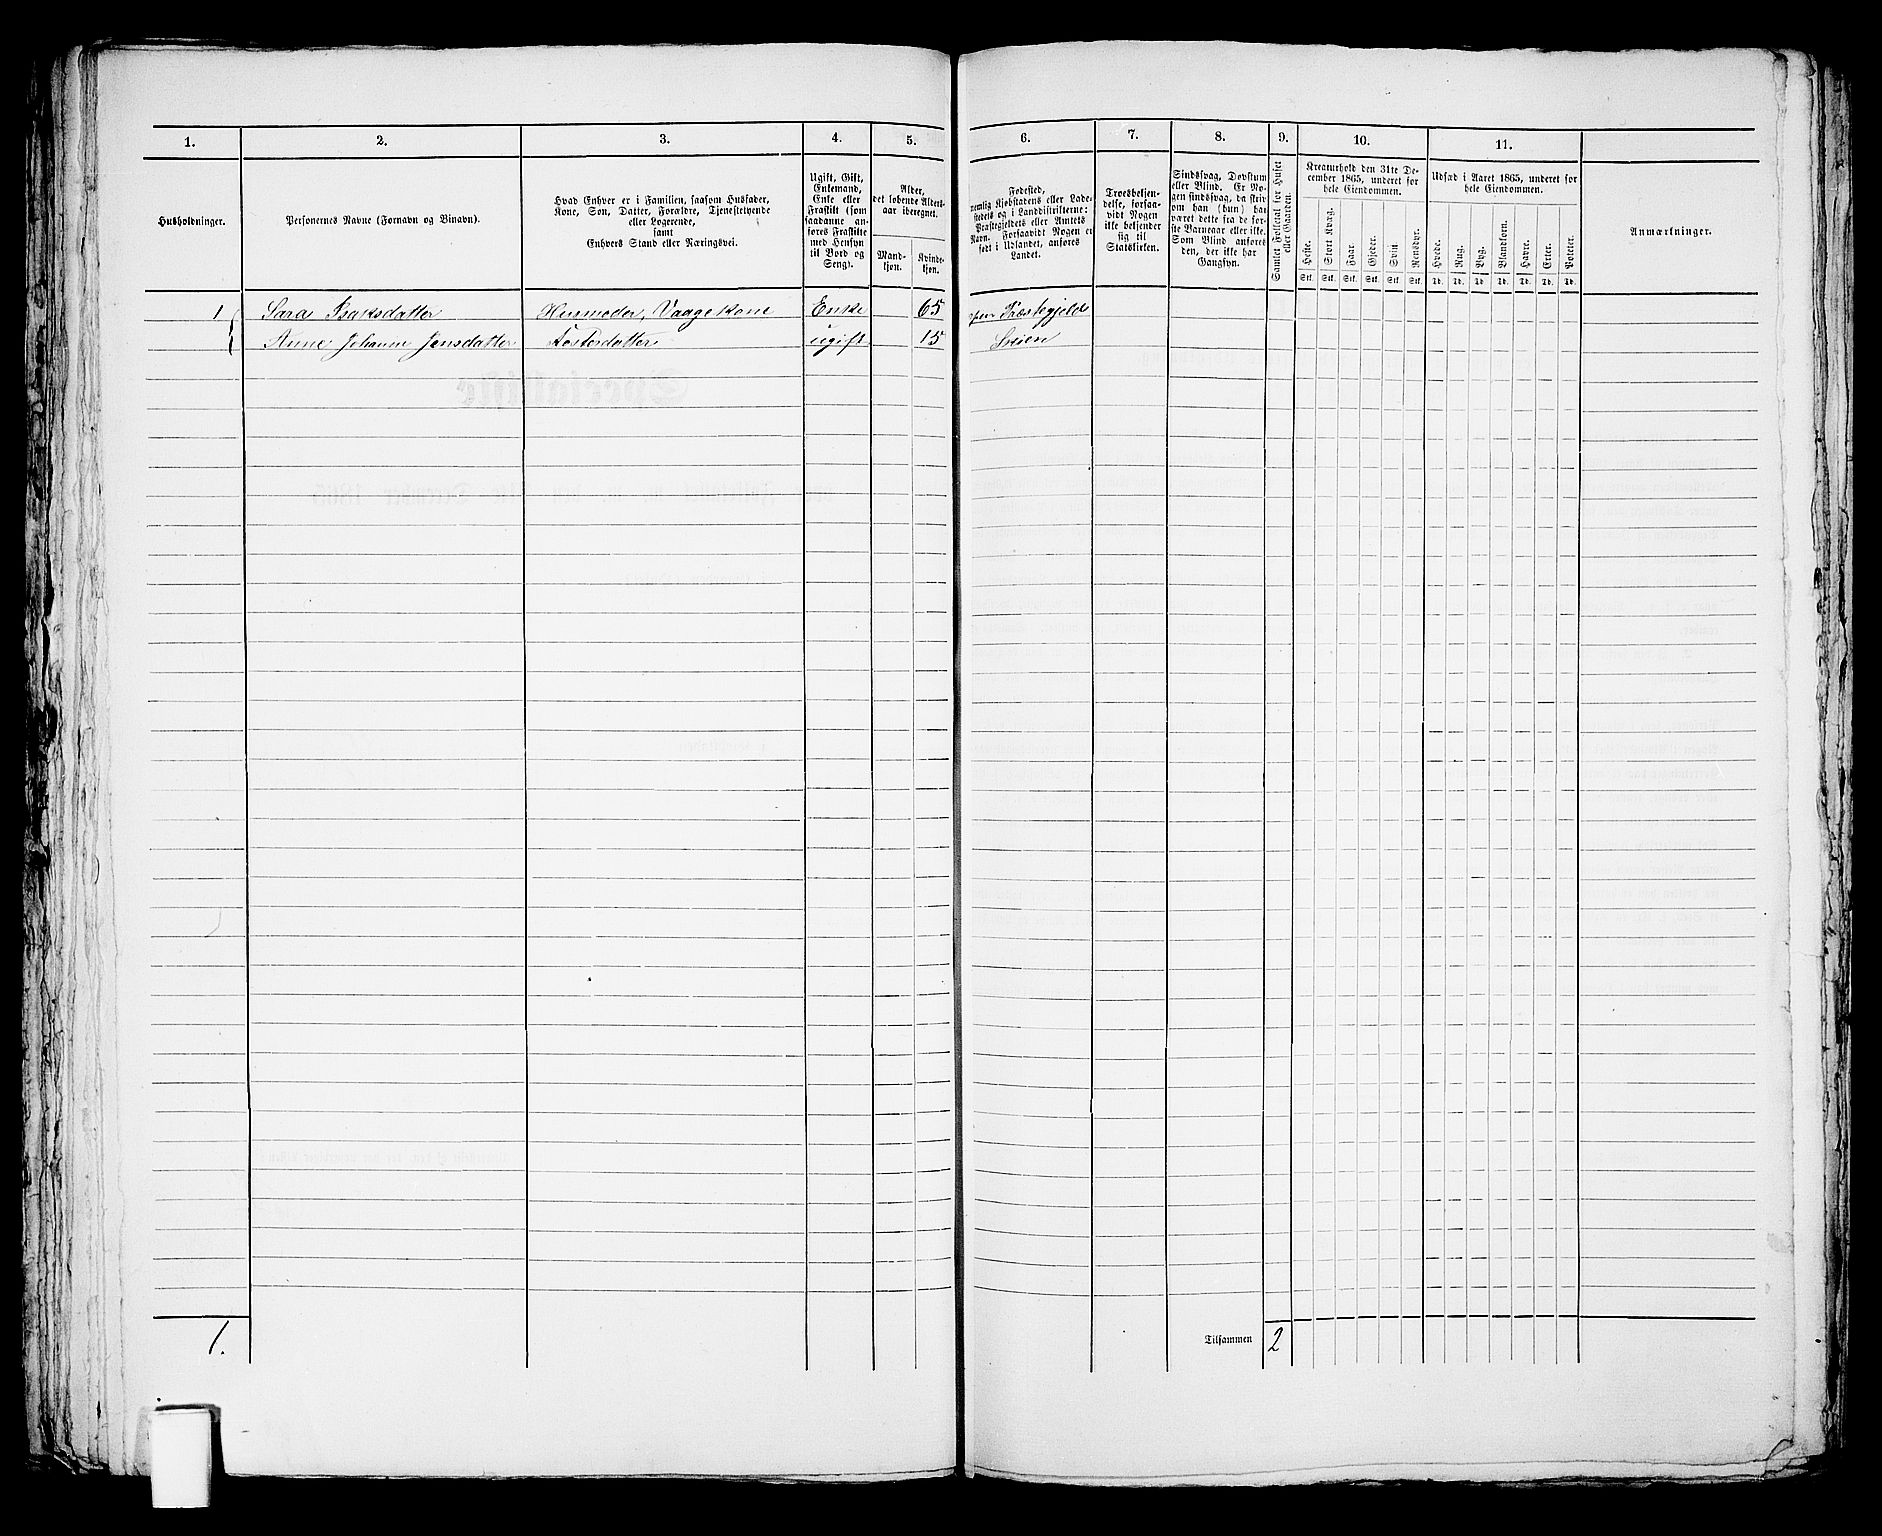 1. 2. 3. 4. 5. 6. 7. 8. 9. 10. 11.
Husholdninger.
Personernes Navne (Fornavn og Binavn).
Hvad Enhver er i Familien, saasom Husfader,
Kone, Søn, Datter, Forældre, Tjenestetyende
eller Logerende,
samt
Enhvers Stand eller Næringsvei.
Ugift, Gift,
Enkemand,
Enke eller
Fraskilt (som
saadanne an-
føres Fraskilte
med Hensyn
til Bord og
Seng).
Alder,
det løbende Alders-
aar iberegnet.
Mand-
kjøn.
Kvinde-
kjøn.
Fødested,
nemlig Kjøbstadens eller Lade-
stedets og i Landdistrikterne:
Præstegjeldets eller Amtets
Navn. Forsaavidt Nogen er
født i Udlandet, anføres
Landet.
Troesbekjen-
delse, forsaa-
vidt Nogen
ikke bekjender
sig til
Statskirken.
Sindssvag, Døvstum
eller Blind. Er No-
gen sindssvag, da skriv
om han (hun) har
været dette fra de før-
ste Barneaar eller ikke.
Som Blind anføres
den, der ikke har
Gangsyn.
Samlet Folketal for Huset
eller Gaarden.
Kreaturhold den 31te De-
cember 1865, underet for
hele Eiendommen.
Heste. Stort Kvæg. Faar. Gjeder. Sviin. Rensdyr.
Stk. Stk. Stk. Stk. Stk. Stk.
Udsæd i Aaret 1865, underet for
hele Eiendommen.
Hvede. Rug. Byg. Blandkorn. Havre. Erter. Poteter.
Td. Td. Td. Td. Td. Td. Td.
Anmærkninger.
1 Sara Isaksdatter Husmoder, Vaagekone Enke 65 Præstegjeld
Anne Johanne Jensdatter Fosterdatter ugift 15
1. Tilsammen 2